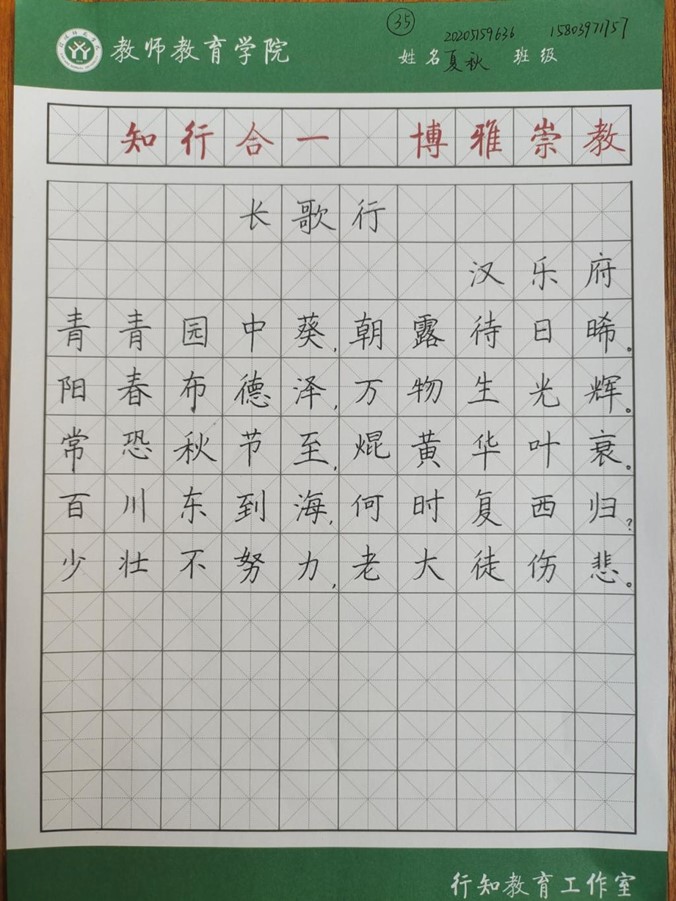 教师教育学院
35
20205159636
15803971757
姓名夏秋 班级
知行合一 博雅崇教
长歌行
汉乐府
青青园中葵,朝露待日晞。
阳春布德泽,万物生光辉。
常恐秋节至,焜黄华叶衰。
百川东到海,何时复西归?
少壮不努力,老大徒伤悲。
行知教育工作室